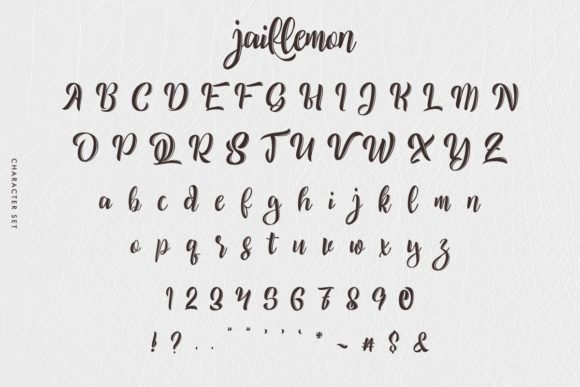 jaillemon
A B C D E F G H I J K L M N
O P Q R S T U V W X Y Z
a b c d e f g h i j k l m n
o p q r s t u v w x y z
1 2 3 4 5 6 7 8 9 0
! ? . . " " ' ' ‘ * ~ # $ &
CHARACTER SET